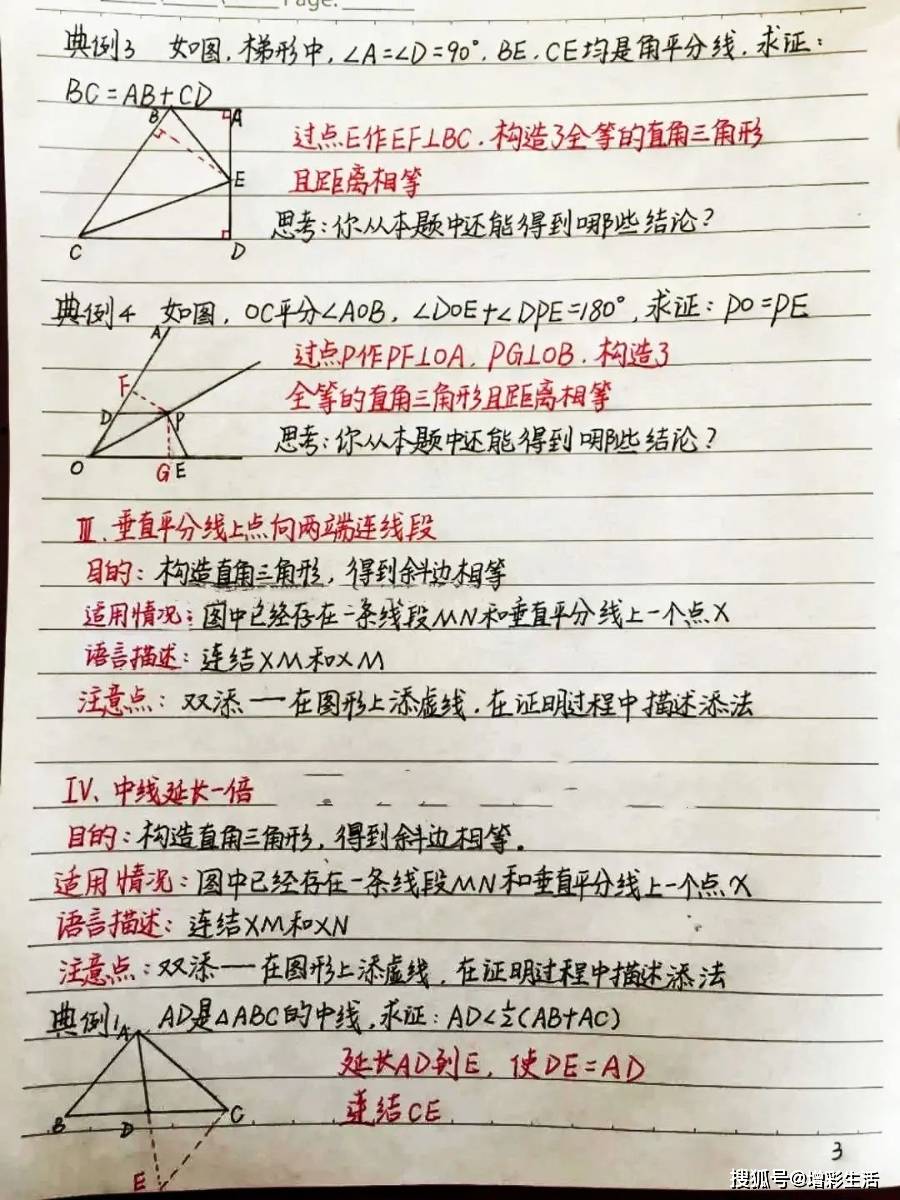 Page:
典例3 如图,梯形中,∠A=∠D=90°,BE、CE均是角平分线,求证:
BC=AB+CD
B A
过点E作EF⊥BC,构造了全等的直角三角形
E
且距离相等
思考:你从本题中还能得到哪些结论?
C D
典例4 如图,OC平分∠AOB,∠DOE+∠DPE=180°,求证:PO=PE
A
过点P作PF⊥OA,PG⊥OB,构造了
F
全等的直角三角形且距离相等
D P
思考:你从本题中还能得到哪些结论?
O G E
Ⅲ、垂直平分线上点向两端连线段
目的:构造直角三角形,得到斜边相等
适用情况:图中已经存在一条线段MN和垂直平分线上一个点X
语言描述:连结XM和XM
注意点:双添——在图形上添虚线,在证明过程中描述添法
IV、中线延长一倍
目的:构造直角三角形,得到斜边相等。
适用情况:图中已经存在一条线段MN和垂直平分线上一个点X
语言描述:连结XM和XN
注意点:双添——在图形上添虚线,在证明过程中描述添法
典例1、AD是△ABC的中线,求证:AD<½(AB+AC)
A
延长AD到E,使DE=AD
连结CE
B D C
E
3
搜狐号@增彩生活